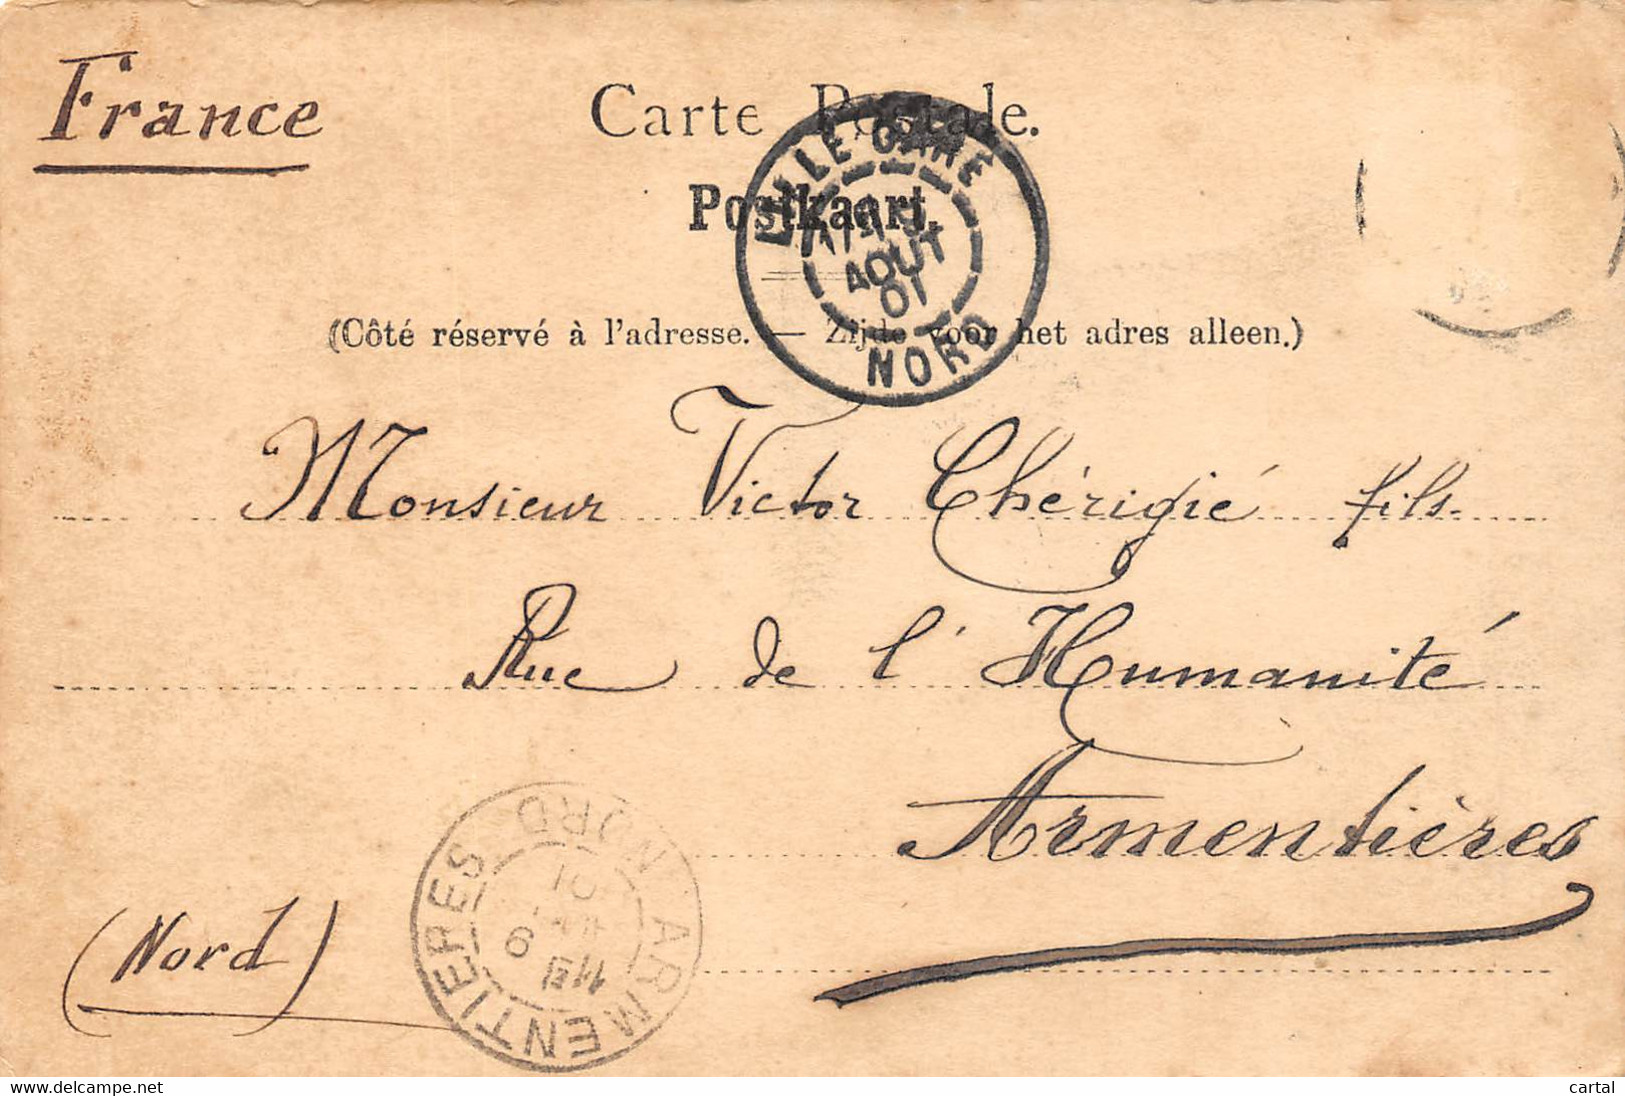 France
Carte Postale.
Postkaart.
LILLE GARE
AOUT
01
NORD
(Côté réservé à l'adresse. — Zijde voor het adres alleen.)
Monsieur Victor Chérigié fils.
Rue de l'Humanité
Armentières
(Nord)
ARMENTIERES
NORD
11 E
6
01
www.delcampe.net
cartal